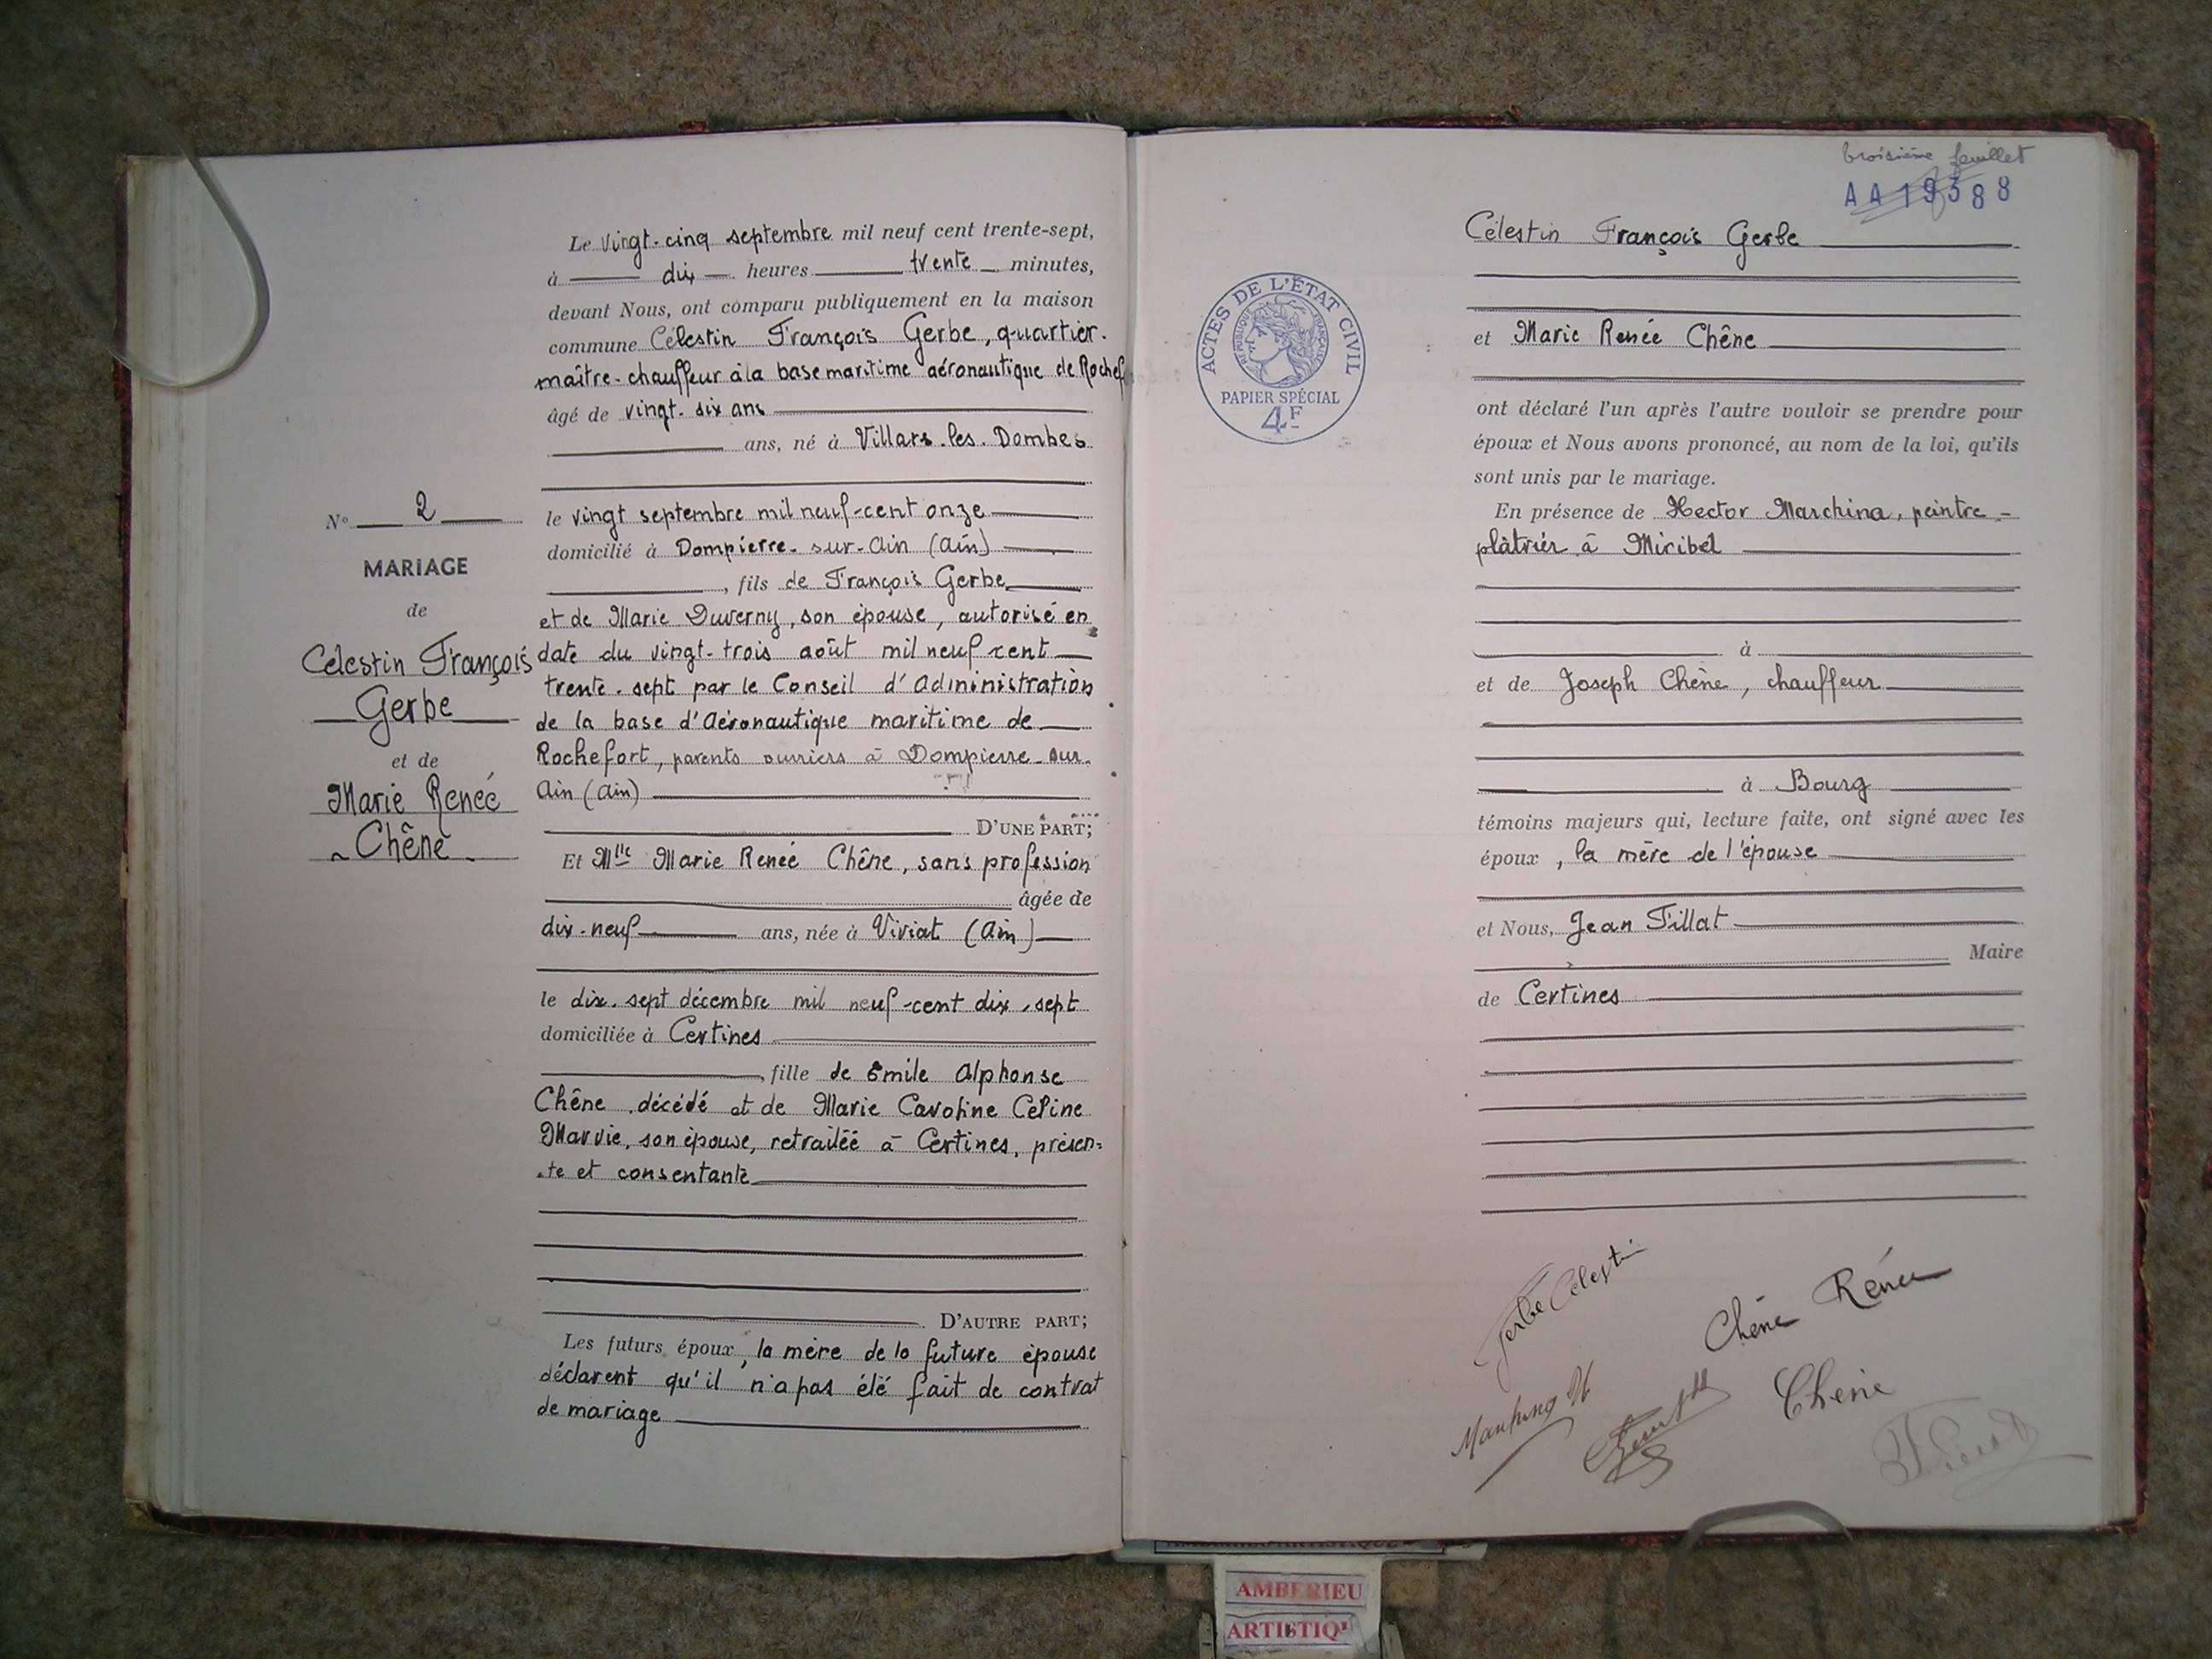 Le vingt-cinq septembre mil neuf cent trente-sept,
à dix heures trente minutes,
devant Nous, ont comparu publiquement en la maison
commune Célestin François Gerbe, quartier-
maître-chauffeur à la base maritime aéronautique de Rochef
âgé de vingt-six ans
ans, né à Villars-les-Dombes
le vingt septembre mil neuf-cent onze
domicilié à Dompierre-sur-Ain (Ain)
, fils de François Gerbe
et de Marie Duverny, son épouse, autorisé en
date du vingt-trois août mil neuf cent
trente-sept par le Conseil d'Administration
de la base d'Aéronautique maritime de
Rochefort, parents ouvriers à Dompierre-sur-
Ain (Ain)
D'UNE PART;
Et Mlle Marie Renée Chêne, sans profession
âgée de
dix-neuf ans, née à Viriat (Ain)
le dix-sept décembre mil neuf-cent dix-sept
domiciliée à Certines
, fille de Emile Alphonse
Chêne, décédé et de Marie Caroline Celine
Marvie, son épouse, retraitée à Certines, présen=
-te et consentante
D'AUTRE PART;
Les futurs époux, la mère de la future épouse
déclarent qu'il n'a pas été fait de contrat
de mariage
N° 2
MARIAGE
de
Célestin François
Gerbe
et de
Marie Renée
Chêne
troisième feuillet
AA19388
Célestin François Gerbe
et Marie Renée Chêne
ont déclaré l'un après l'autre vouloir se prendre pour
époux et Nous avons prononcé, au nom de la loi, qu'ils
sont unis par le mariage.
En présence de Hector Marchina, peintre-
plâtrier à Miribel
à
et de Joseph Chêne, chauffeur
à Bourg
témoins majeurs qui, lecture faite, ont signé avec les
époux, la mère de l'épouse
et Nous, Jean Tillat
Maire
de Certines
ACTES DE L'ÉTAT CIVIL
RÉPUBLIQUE FRANÇAISE
PAPIER SPÉCIAL
4F
Gerbe Célestin
Chêne Renée
Chene
AMBERIEU
ARTISTIQU